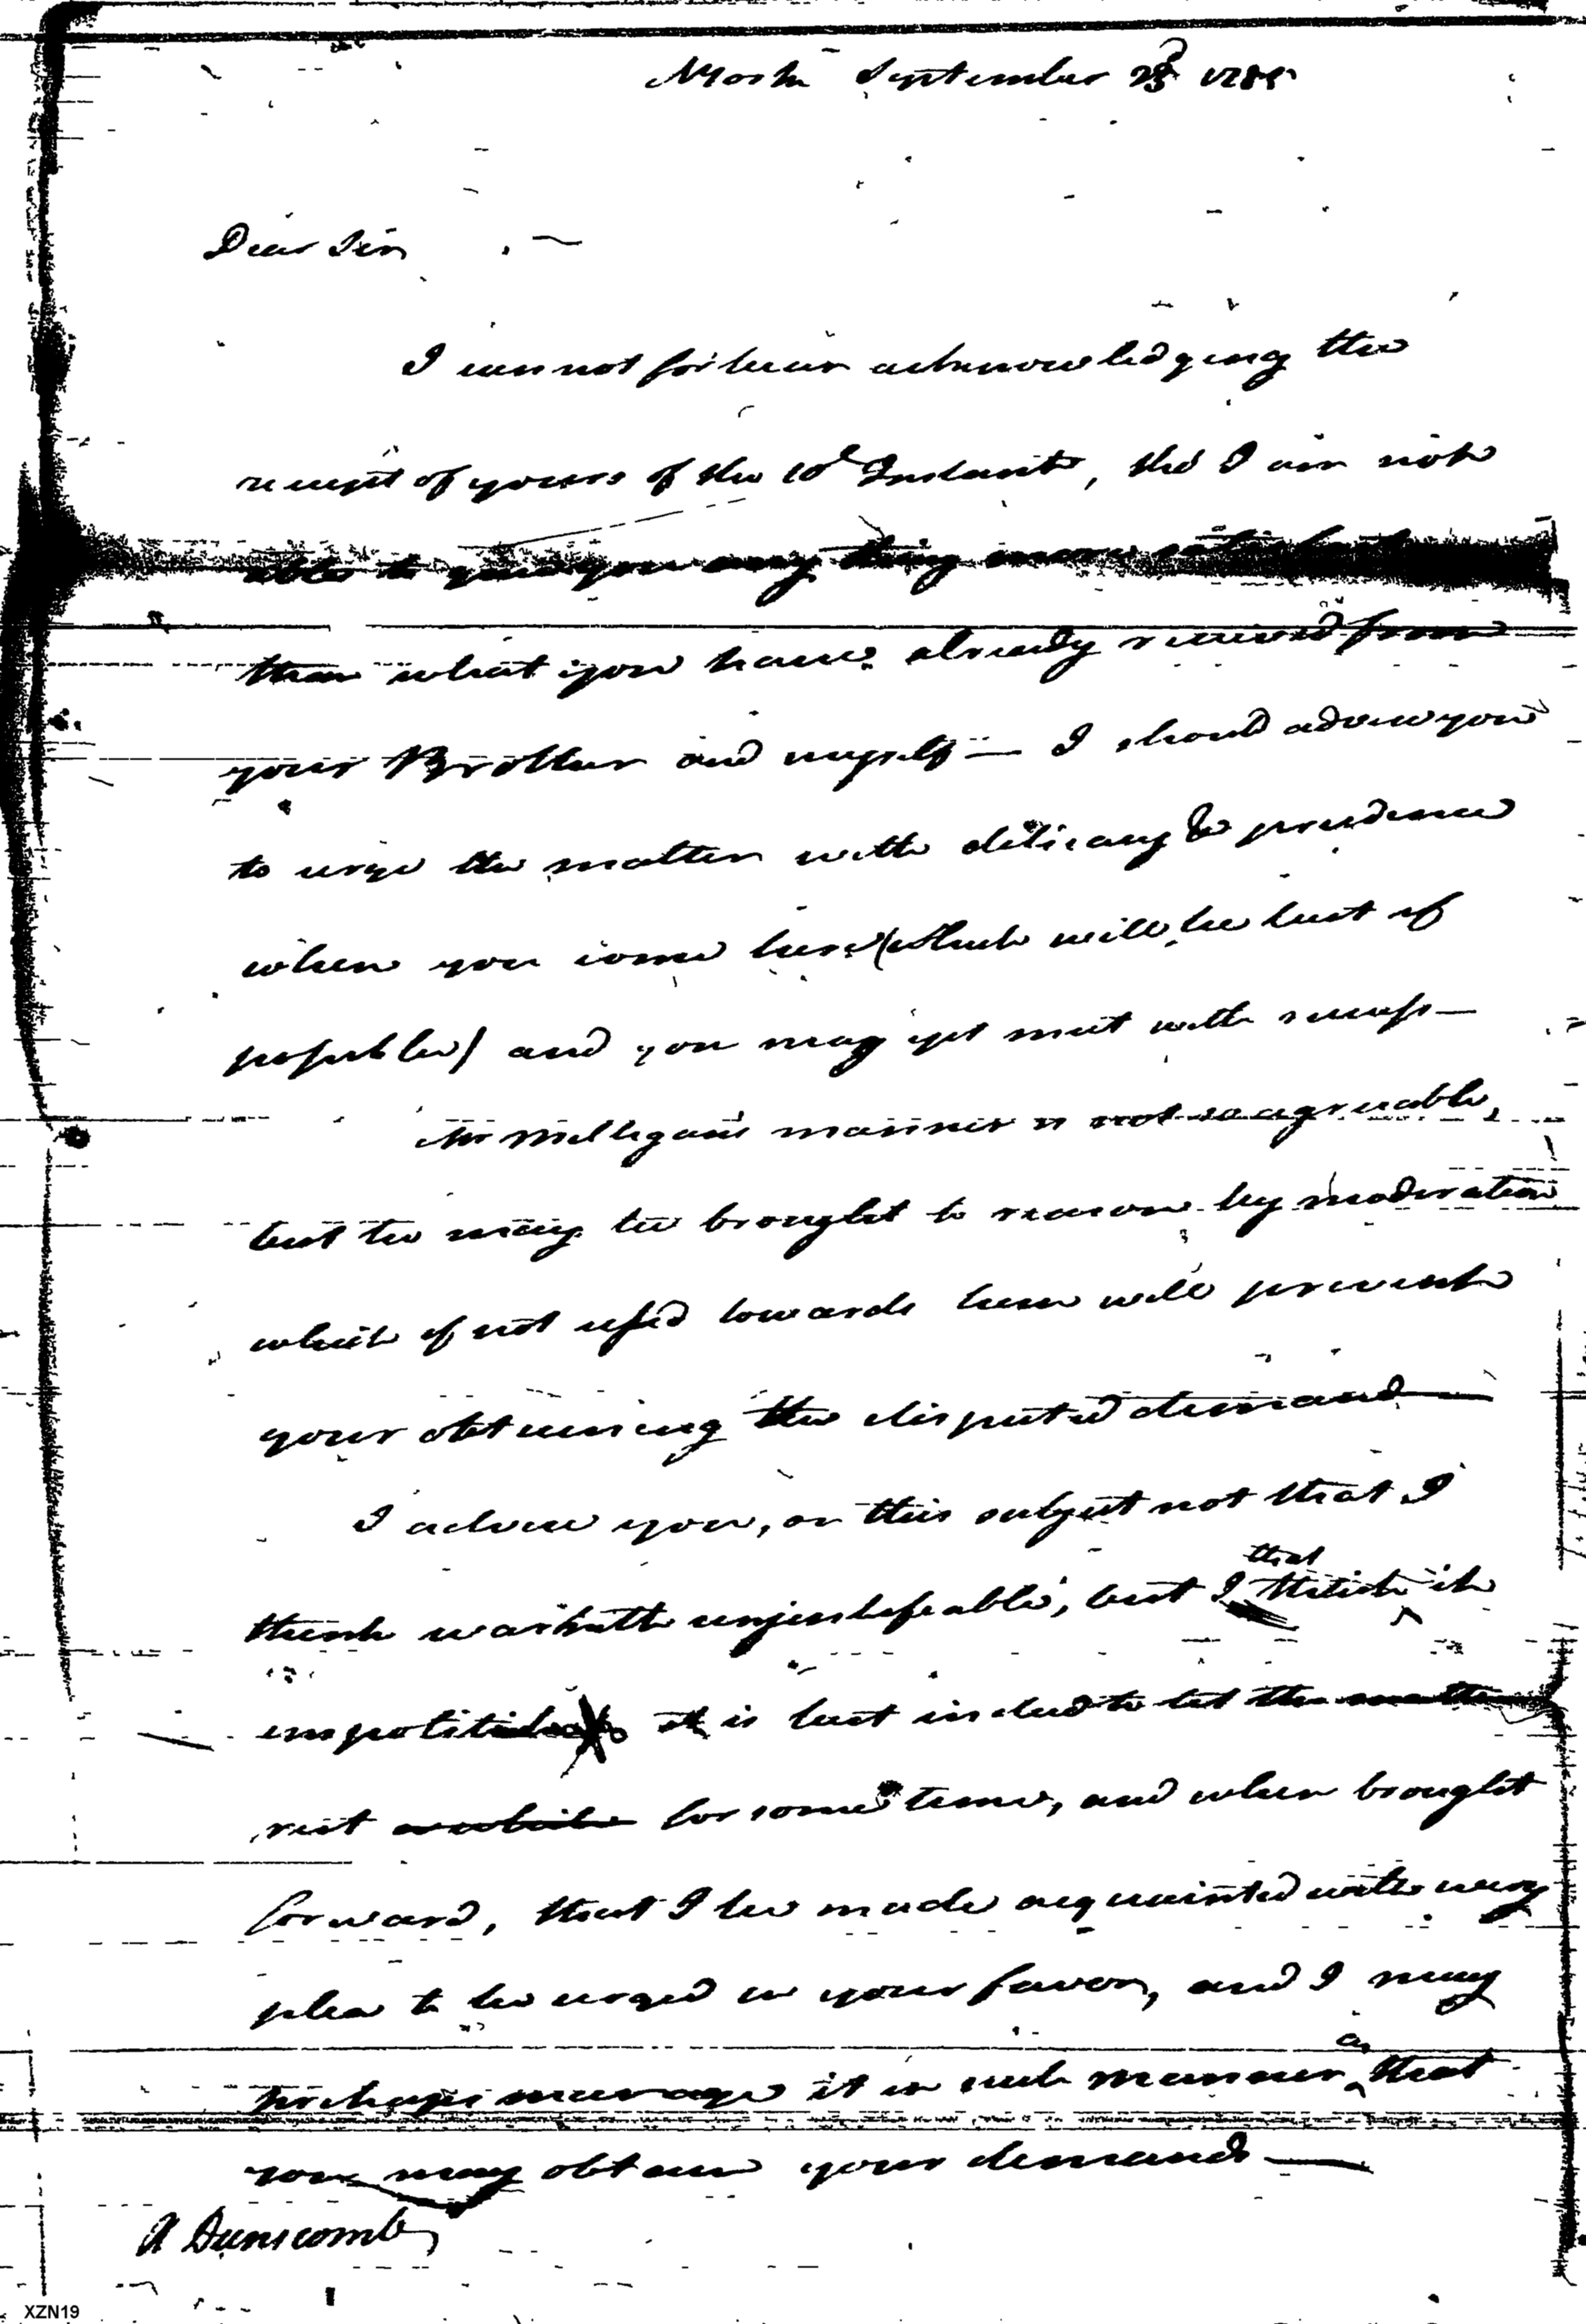 NYork September 23d 1785
Dear Sir
I cannot forbear acknowledging the
receipt of yours of the 10th Instant, tho' I am not
able to give you any thing more
than what you have already received from
your Brother and myself — I should advise you
to urge the matter with delicacy & prudence
when you come here (which will be best if
possible) and you may yet meet with success —
Mr Milligan's manner is not so agreeable,
but he may be brought to reason by moderation
which if not used towards him will prevent
your obtaining the disputed demand —
I advise you, on this subject not that I
that
think warmth unjustifiable, but I think it
impolitic it is best indeed to let the matter
rest awhile for some time, and when brought
forward, that I be made acquainted with every
plea to be urged in your favor, and I may
a
perhaps manage it in such manner that
you may obtain your demand —
A Dunscomb
XZN19